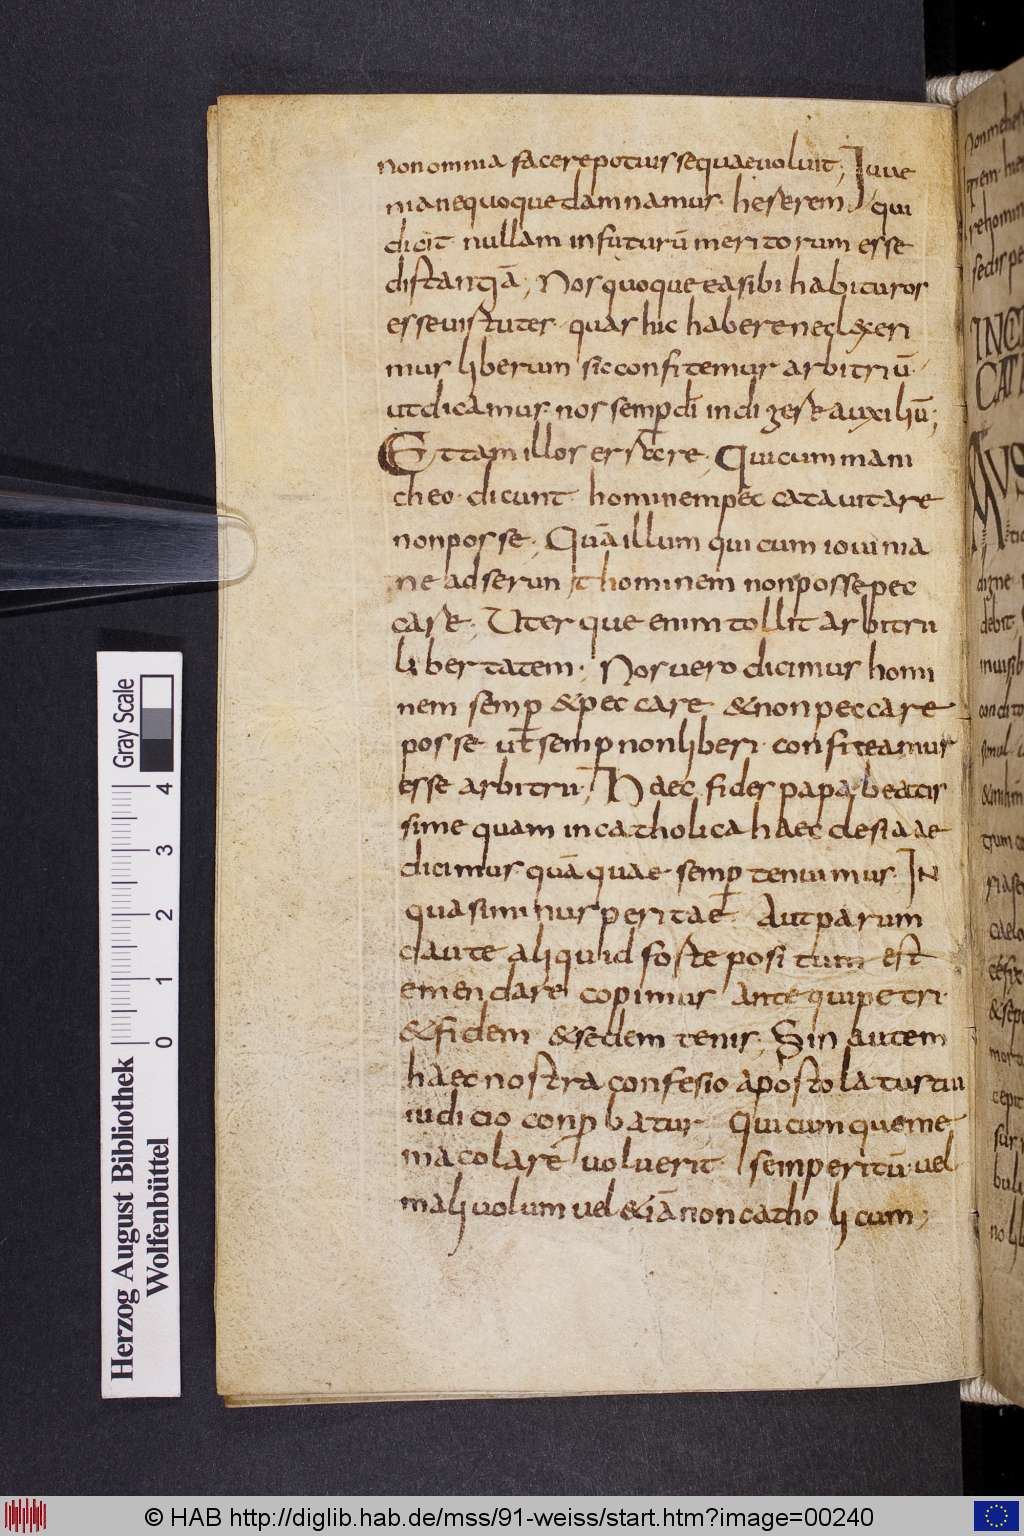 non omnia facere potuisse quae voluit; Iuve
niane quoque damnamus heserem. qui
dicit nullam in futurū meritorum esse
distantiā; Nos quoque ea sibi habituros
esse uistutes quas hic habere neclexeri
mur liberum sic confitemur arbitriū
ut dicamus nos semp di indigere auxiliū;
Et tam illos errare. Qui cum mani
cheo dicunt hominem peccata vitare
non posse; Quā illum qui cum iovinia
ne adserunt hominem non posse pec
care; Uterque enim tollit arbitrii
libertatem; Nos vero dicimus homi
nem semp & peccare & non peccare
posse ut semp nos liberi confiteamur
esse arbitrii; Haec fides papa beatis
sime quam in catholica haecclesia ae
dicimus quā quae semp tenuimus. IN
qua si minus peritae Aut parum
caute aliquid forte positum est
emendare copimus Ante qui petri
& fidem & sedem tenis; Sin autem
haec nostra confesio apostolatus tui
iudicio conpbatur Quicumque me
macolare voluerit semperitū vel
malivolum vel &iā non catholicum;
Non me her
INCI
CAT
MUS
Herzog August Bibliothek
Wolfenbüttel
Gray Scale
0 1 2 3 4
© HAB http://diglib.hab.de/mss/91-weiss/start.htm?image=00240